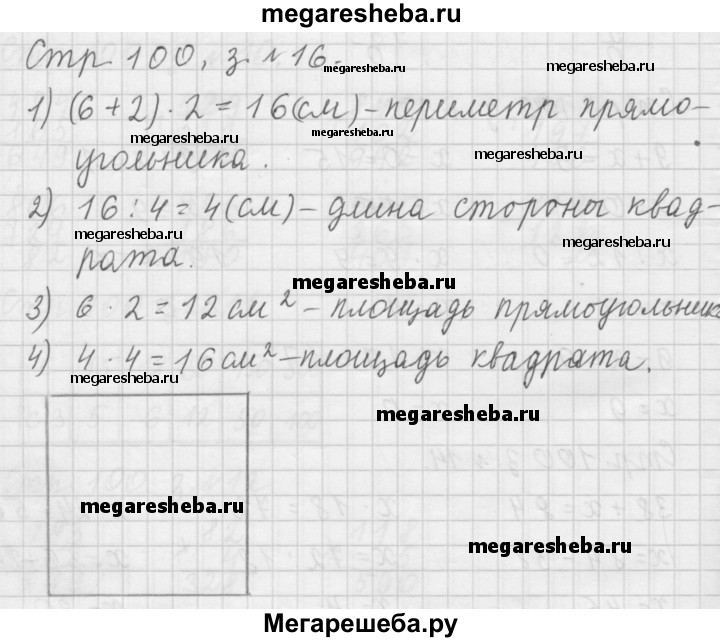 megaresheba.ru
Стр. 100, з. №16.
megaresheba.ru
megaresheba.ru
1) (6+2)·2=16(см)–периметр прямо-
megaresheba.ru
megaresheba.ru
угольника.
megaresheba.ru
2) 16:4=4(см)–длина стороны квад-
megaresheba.ru
megaresheba.ru
рата.
megaresheba.ru
3) 6·2=12см²–площадь прямоугольника
4) 4·4=16см²–площадь квадрата.
megaresheba.ru
megaresheba.ru
megaresheba.ru
megaresheba.ru
Мегарешеба.ру